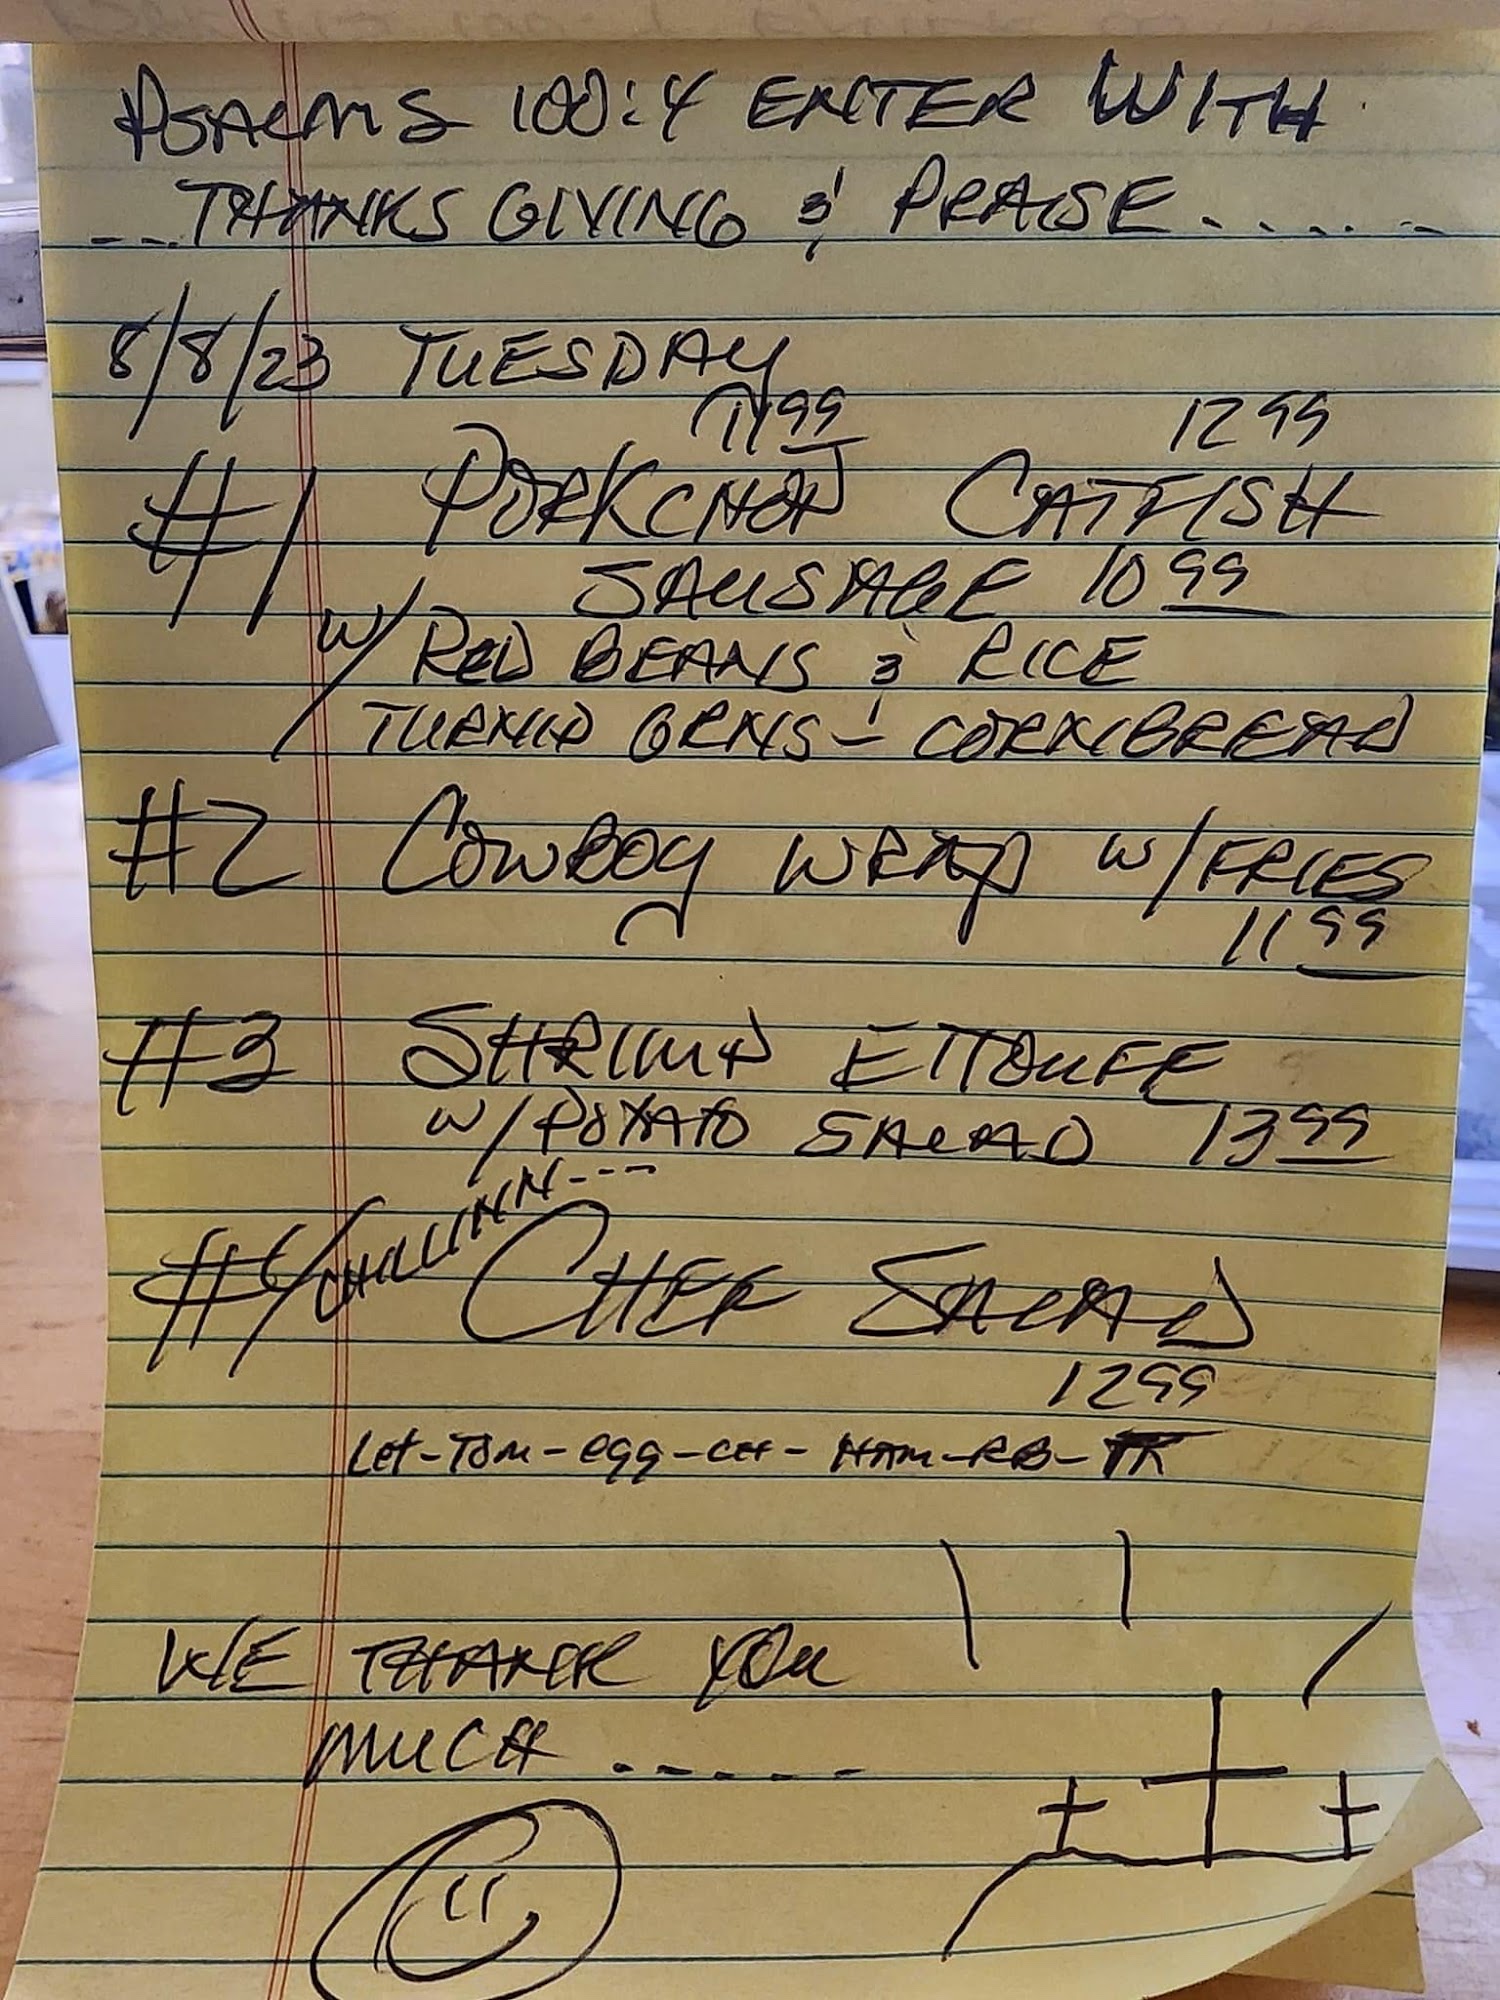 PSALMS 100:4 ENTER WITH
---THANKSGIVING & PRAISE.....
8/8/23 TUESDAY
11 99 12 99
#1 PORKCHOP CATFISH
SAUSAGE 10 99
W/ RED BEANS & RICE
TURNIP GRNS - CORNBREAD
#2 COWBOY WRAP W/FRIES
11 99
#3 SHRIMP ETTOUFEE
W/ POTATO SALAD 13 99
#4/CHILLINN--- CHEF SALAD
12 99
Let-Tom-egg-CH-HAM-RB-TK
WE THANK YOU
MUCH -----